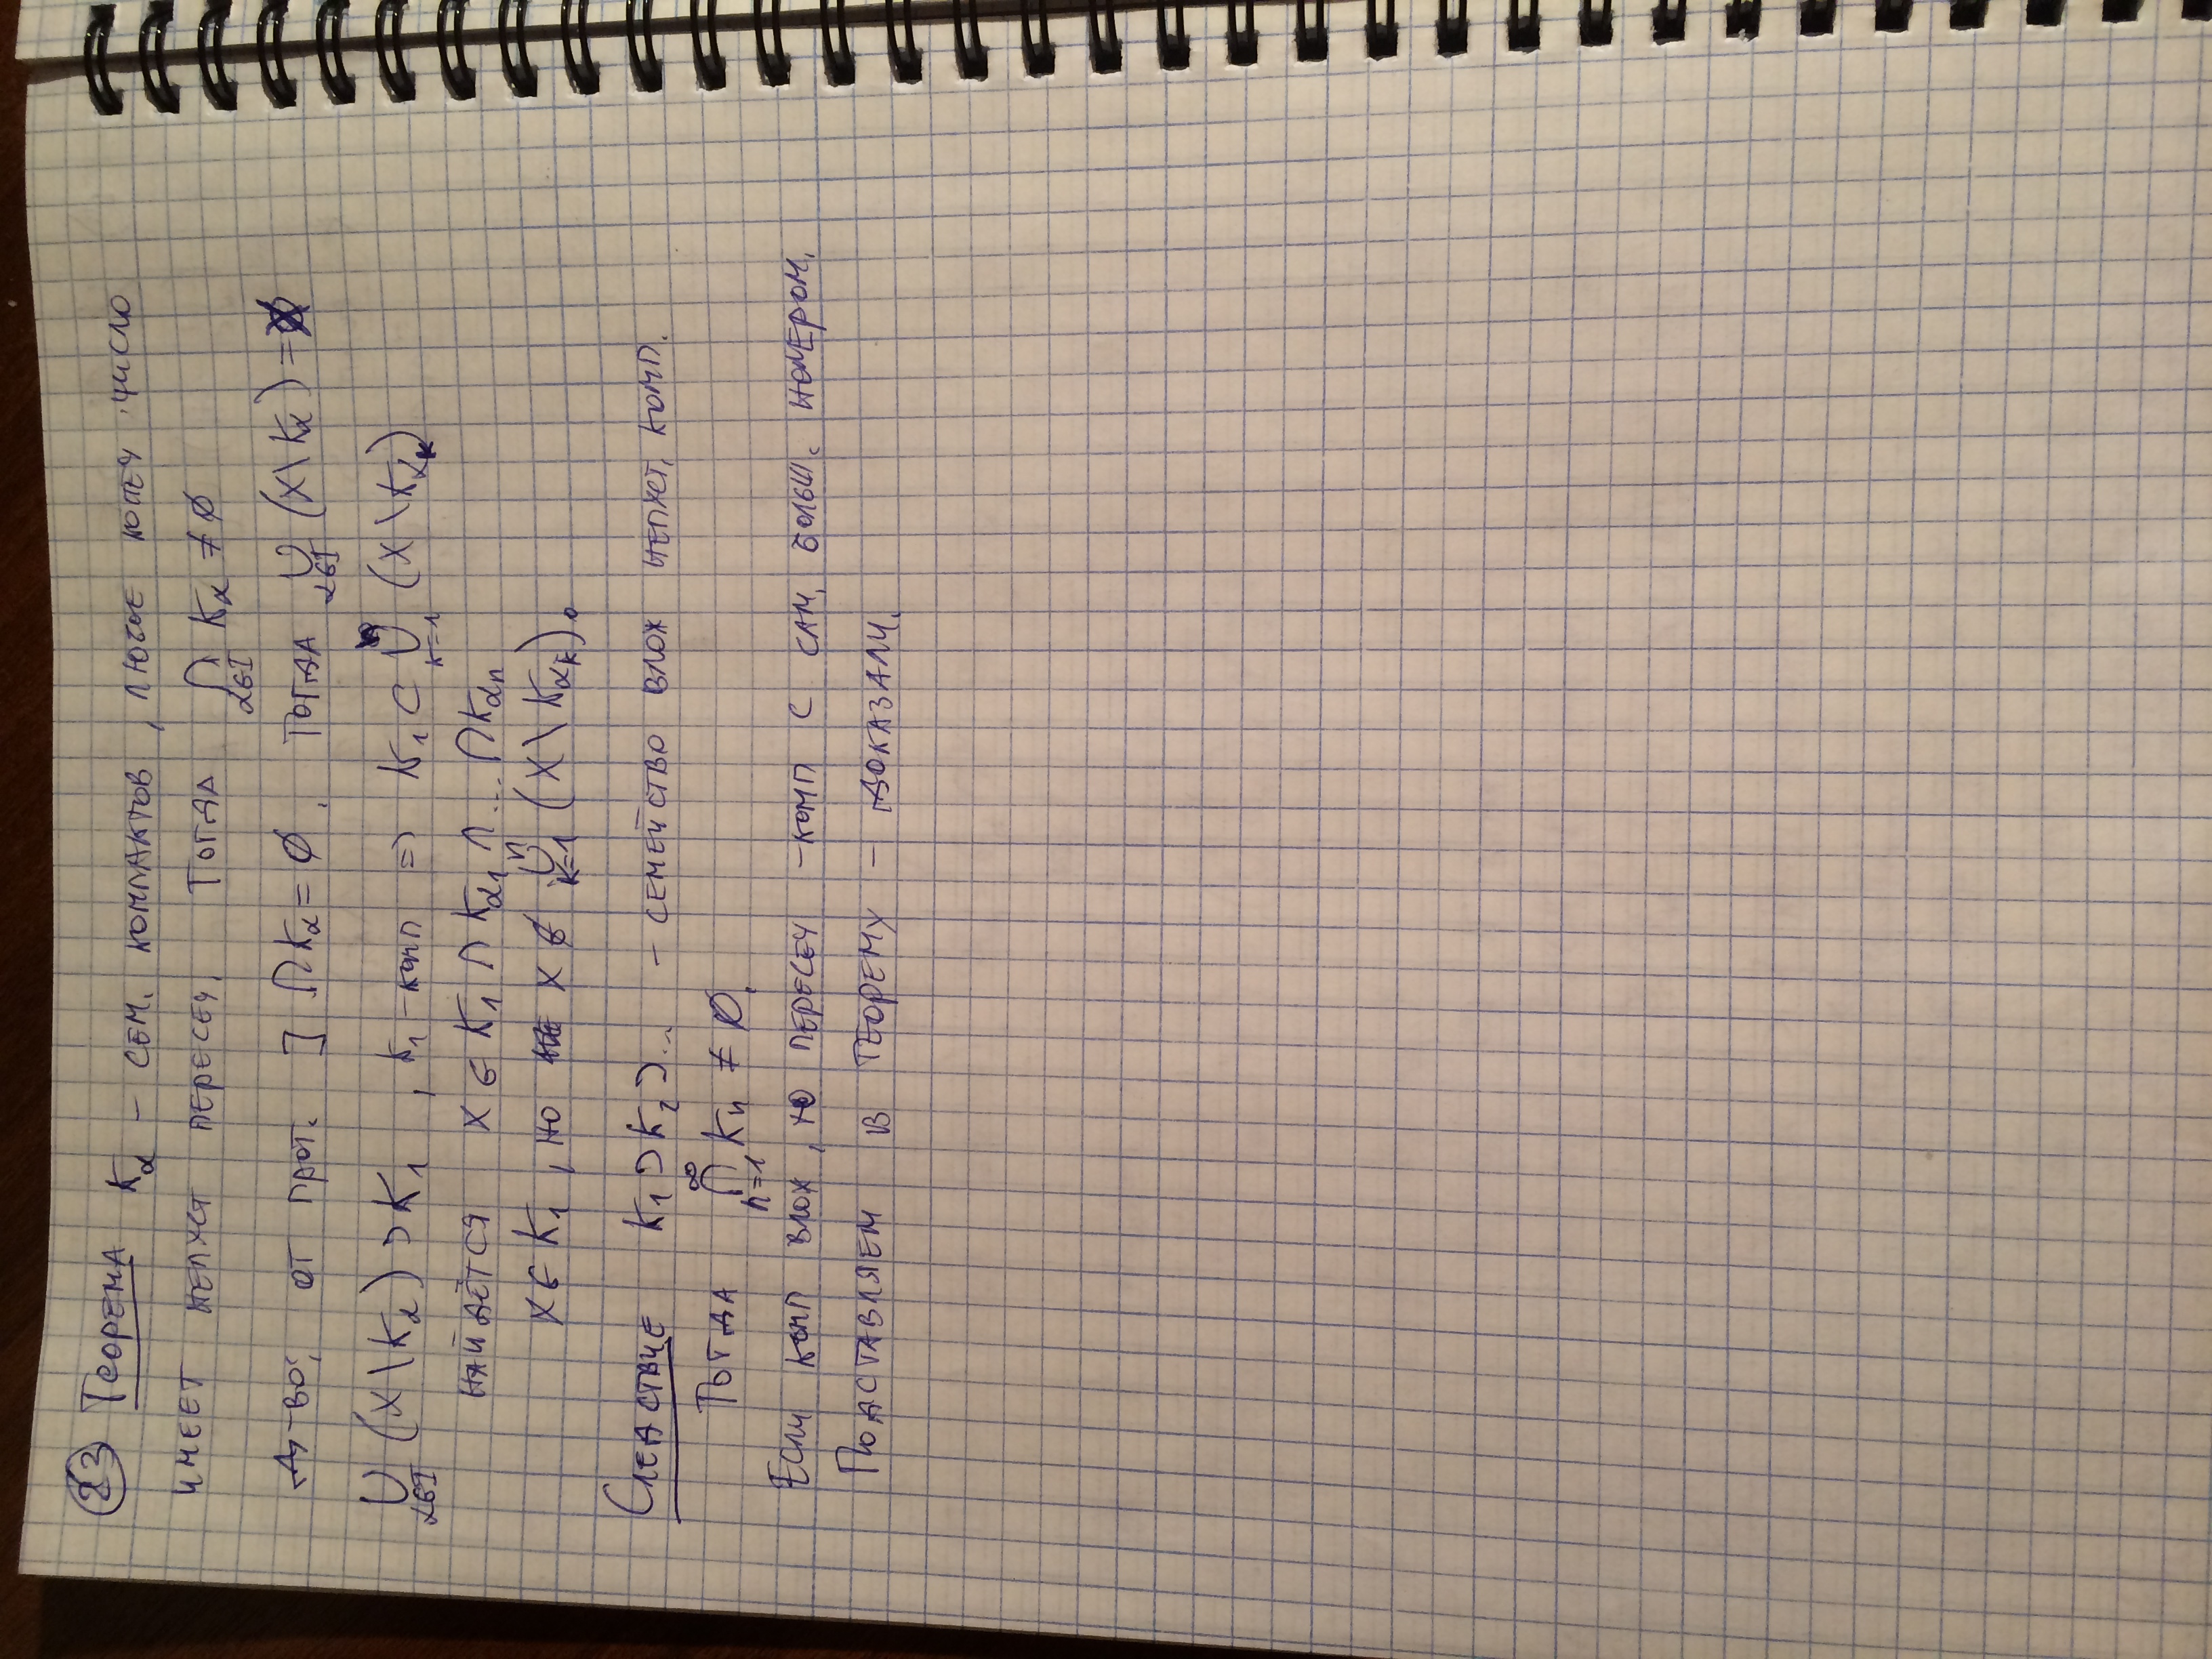 23 Теорема K_α – сем. компактов, любое конеч число
имеет непуст пересеч. Тогда ⋂_{α∈I} K_α ≠ ∅
Д-во: от прот. ] ⋂K_α = ∅. Тогда ⋃_{α∈I} (X \ K_α) = X
⋃_{α∈I} (X \ K_α) ⊃ K_1, K_1 – комп ⇒ K_1 ⊂ ⋃_{k=1}^{n} (X \ K_{α_k})
найдётся x ∈ K_1 ∩ K_{α_1} ∩ ... ∩ K_{α_n}
x ∈ K_1, но x ∉ ⋃_{k=1}^{n} (X \ K_{α_k}).
Следствие K_1 ⊃ K_2 ⊃ ... – семейство влож непуст. комп.
Тогда ⋂_{n=1}^{∞} K_n ≠ ∅.
Если комп влож, то пересеч – комп с сам. больш. номером.
Подставляем в теорему – доказали.